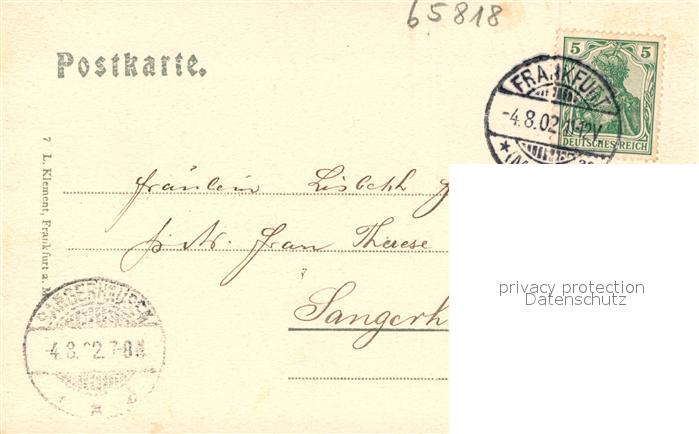 65818
Postkarte.
5 5
DEUTSCHES REICH
FRANKFURT
-4.8.02 11-12V
7 L. Klement, Frankfurt a. M
Fräulein Lisbeth
Frau Therese
Sangerh
SANGERHAUSEN
4.8.02.7-8N
privacy protection
Datenschutz